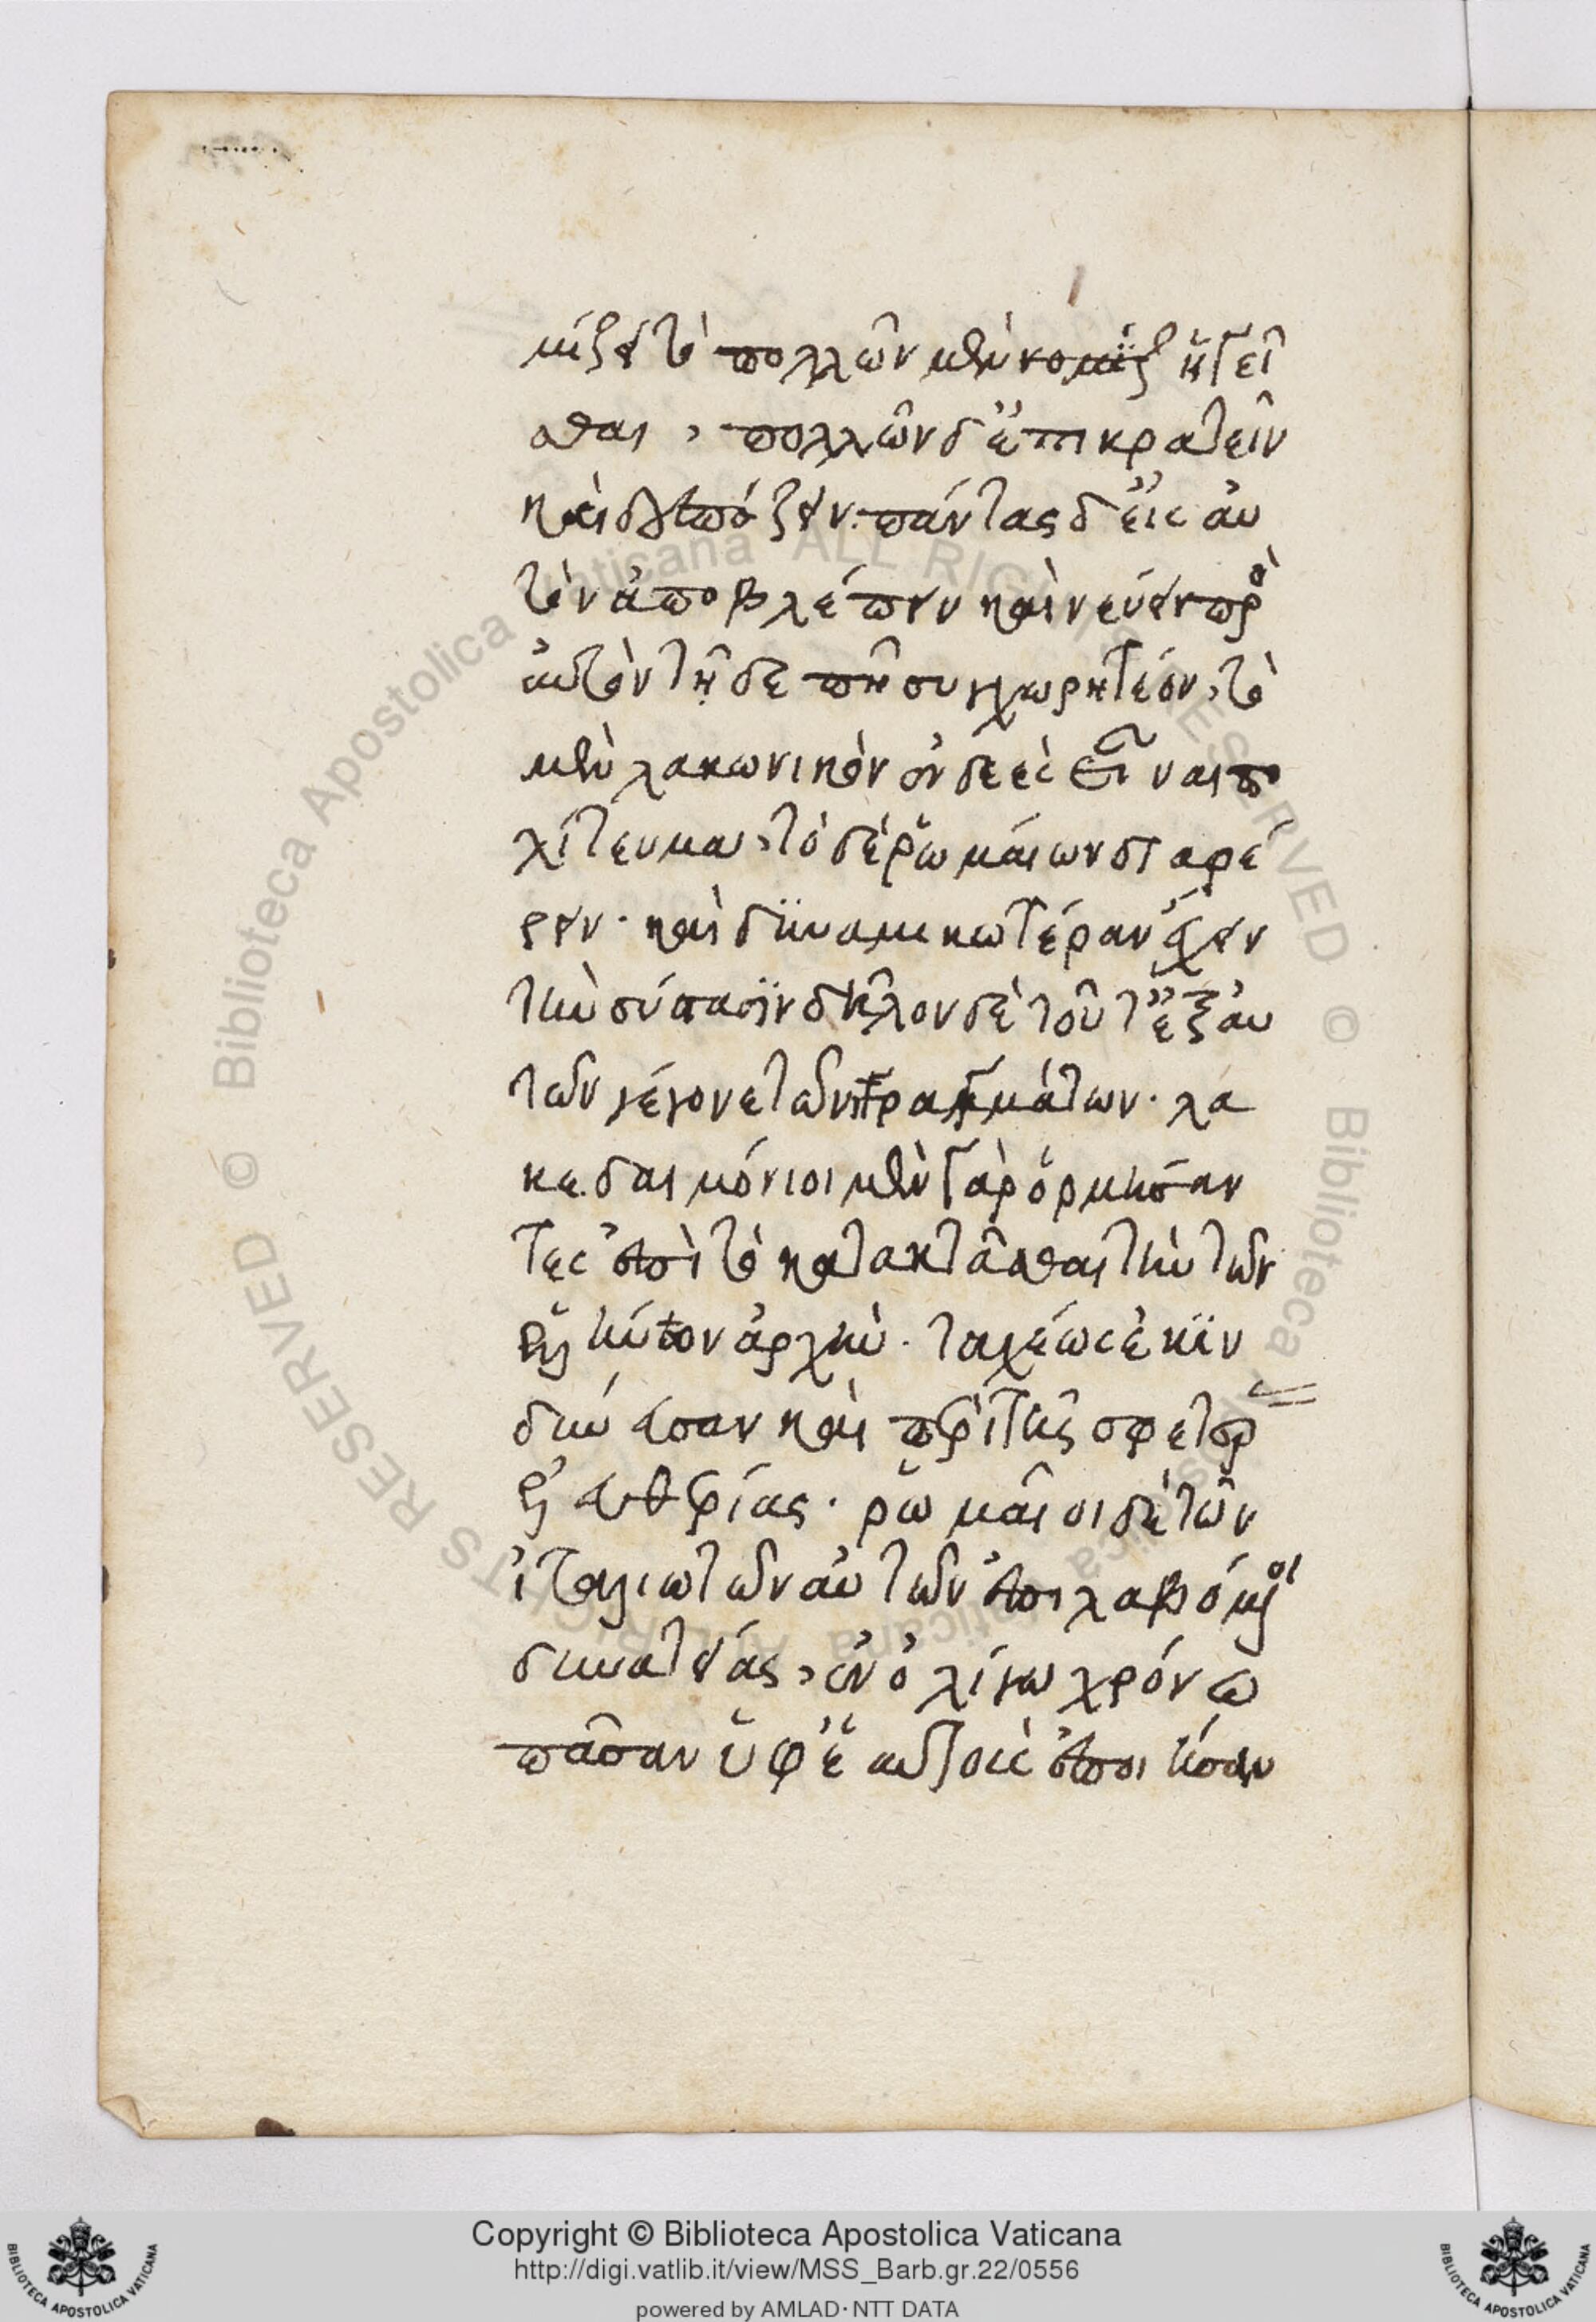 μίζει τὸ πολλῶν μὲν νομίζ ἡγεῖ
σθαι, πολλῶν δ' ἐπικρατεῖν
καὶ δεσπόζειν. πάντας δ' εἰς αὐ
τὸν ἀποβλέπειν καὶ νεύειν πρὸς
αὐτὸν τῆδε πῆ συγχωρητέον, τὸ
μὲν λακωνικὸν ἐνδεὲς εἶναι πο
λίτευμα, τὸ δὲ ῥωμαίων διαφέ
ρειν. καὶ δυναμικωτέραν ἔχειν
τὴν σύστασιν δῆλον δὲ τοῦτ' ἐξ αὐ
τῶν γέγονε τῶν πραγμάτων. λα
κεδαιμόνιοι μὲν γὰρ ὁρμήσαν
τες ἐπὶ τὸ κατακτᾶσθαι τὴν τῶν
ἀρχήν. ταχέως ἐκιν
δύνευσαν καὶ περὶ τῆς σφετέρ
ἐλευθερίας. ῥωμαῖοι δὲ τῶν
ἰταλιωτῶν αὐτῶν ἐπιλαβόμενοι
δυναστείας, ἐν ὀλίγω χρόνω
πᾶσαν ὑφ' ἑαυτοὺς ἐποιήσαν
Copyright © Biblioteca Apostolica Vaticana
http://digi.vatlib.it/view/MSS_Barb.gr.22/0556
powered by AMLAD·NTT DATA